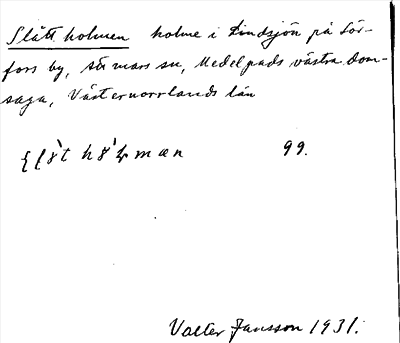 Slättholmen holme i Lindsjön på Sör-
fors by, Attmars sn, Medelpads västra dom-
saga, Västernorrlands län
99.
Valter Jansson 1931.